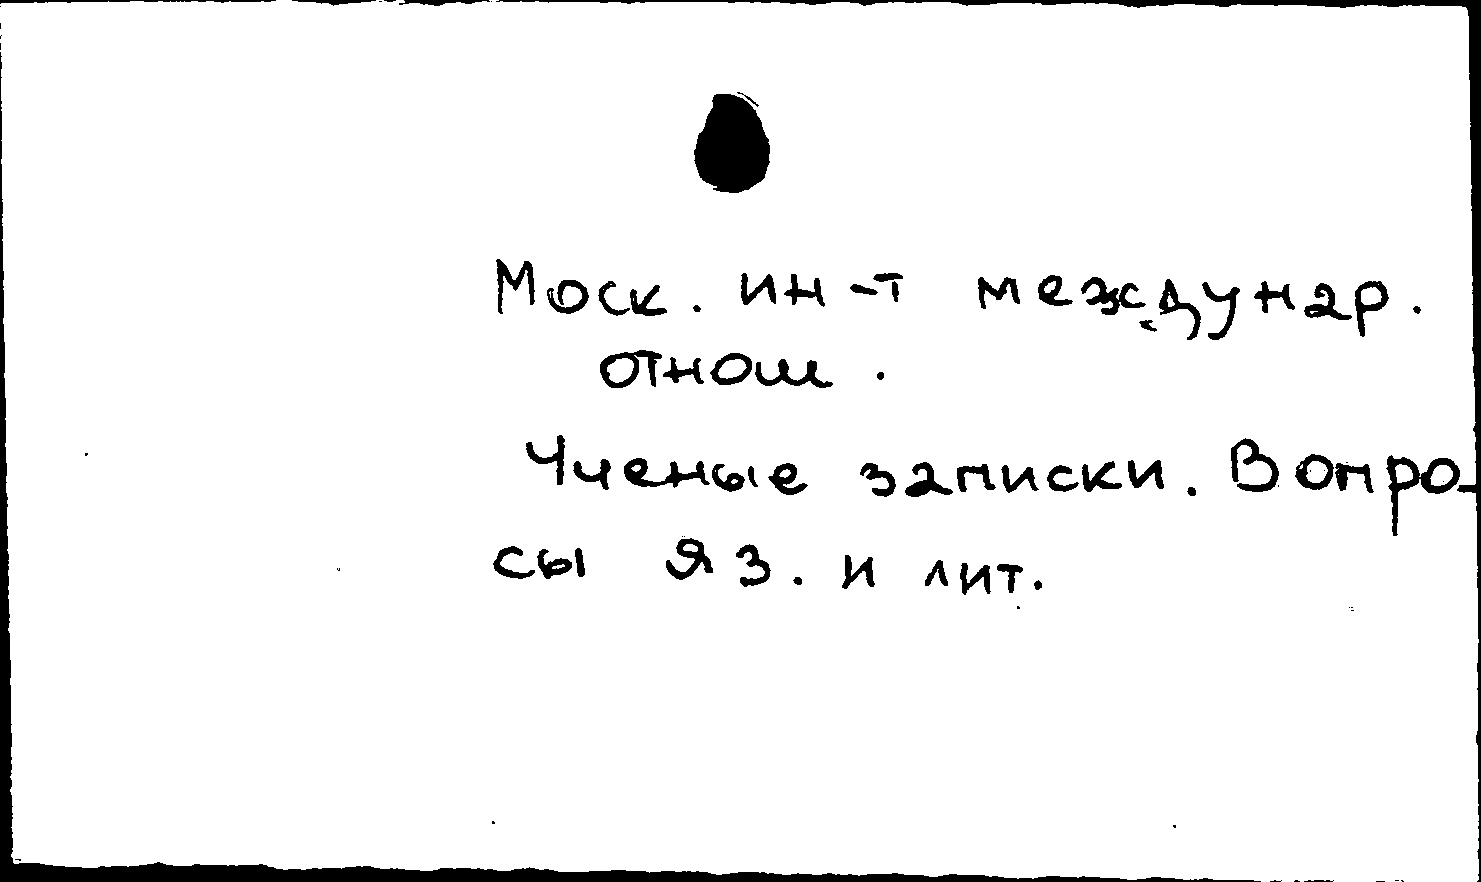 Моск. ин-т междунар.
отнош.
Ученые записки. Вопро-
сы яз. и лит.